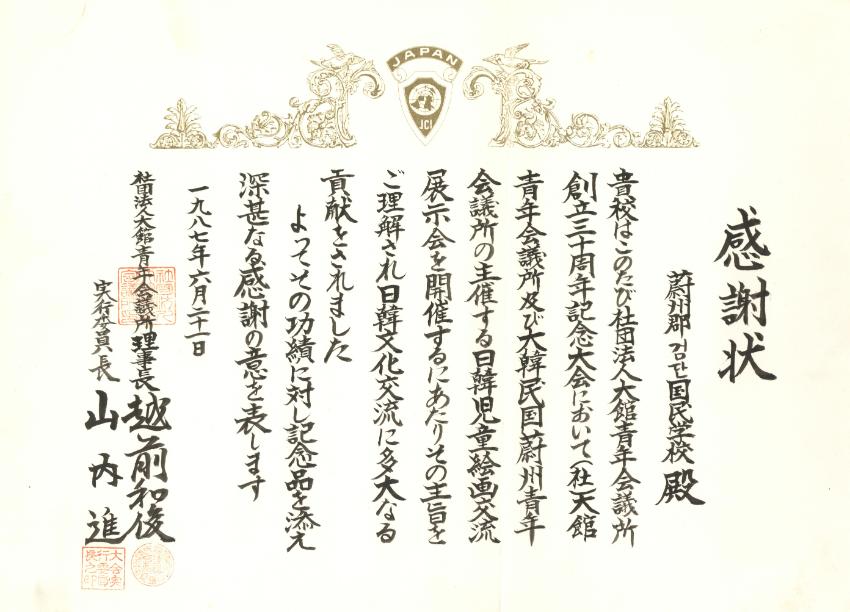 JAPAN
JCI
感謝状
蔚州郡 검단国民学校 殿
貴校はこのたび社団法人大館青年会議所
創立三十周年記念大会において(社)大館
青年会議所及び大韓民国蔚州青年
会議所の主催する日韓児童絵画交流
展示会を開催するにあたりその主旨を
ご理解され日韓文化交流に多大なる
貢献をされました
よってその功績に対し記念品を添え
深甚なる感謝の意を表します
一九八七年六月二十一日
社団法人大館青年会議所理事長 越前和俊
実行委員長 山内進
大会実行委員長之印